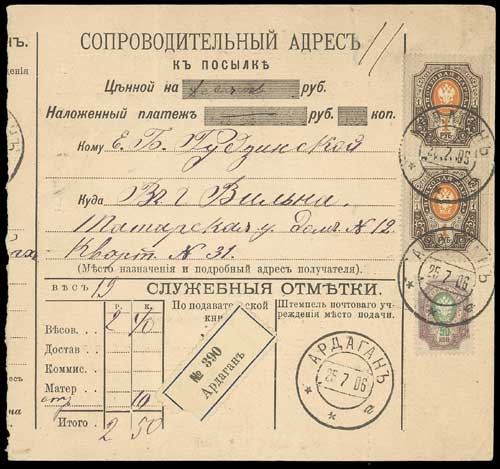 СОПРОВОДИТЕЛЬНЫЙ АДРЕСЪ
КЪ ПОСЫЛКѢ
Цѣнной на руб.
Наложенный платежъ руб. коп.
Кому Е. Б.
Куда Въ г. Вильна.
Татарская у. Домъ № 12
Кварт. № 31.
(Мѣсто назначенія и подробный адресъ получателя).
ВѢСЪ 19
СЛУЖЕБНЫЯ ОТМѢТКИ.
Р. К.
Вѣсов. 2 40
Достав
Комис.
Матер 10
Итого 2 50
По подавательской
кни
№ 390
Ардаганъ
Штемпель почтоваго уч-
режденія мѣсто подачи.
АРДАГАНЪ
25 7 06
а
АРДАГАНЪ
25.7.06
АРДАГАНЪ
25 7 06